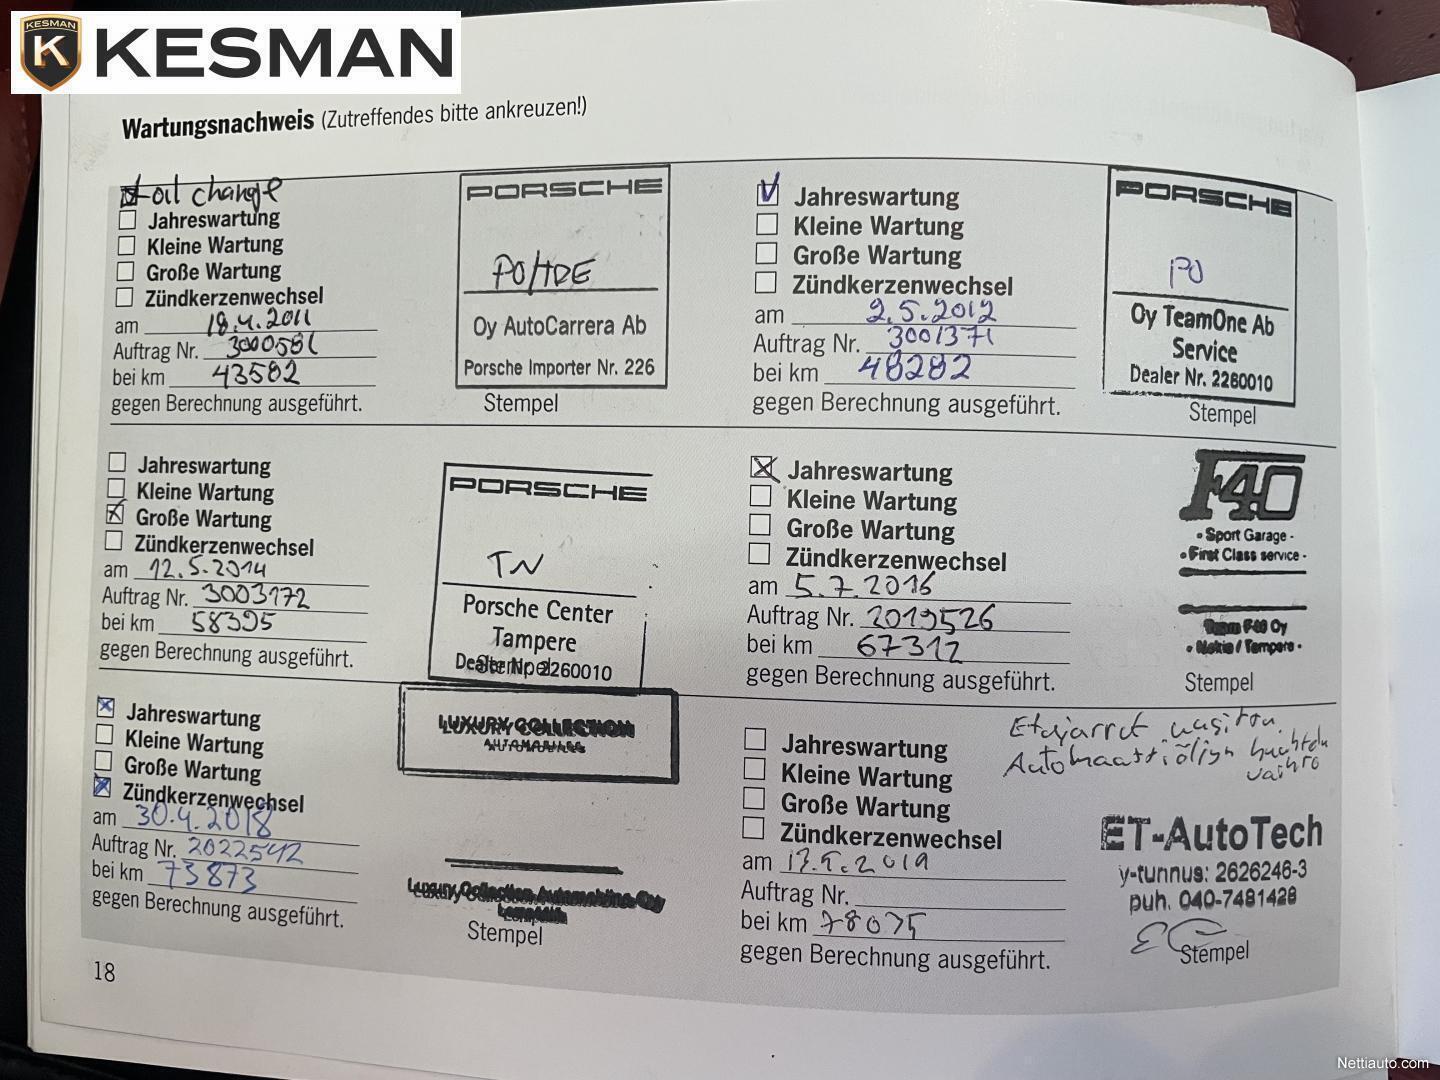 KESMAN
K
KESMAN
Wartungsnachweis (Zutreffendes bitte ankreuzen!)
oil change
Jahreswartung
Kleine Wartung
Große Wartung
Zündkerzenwechsel
am 18.4.2011
Auftrag Nr. 3000581
bei km 43582
gegen Berechnung ausgeführt.
PORSCHE
PO/TDE
Oy AutoCarrera Ab
Porsche Importer Nr. 226
Stempel
Jahreswartung
Kleine Wartung
Große Wartung
Zündkerzenwechsel
am 2.5.2012
Auftrag Nr. 3001371
bei km 48282
gegen Berechnung ausgeführt.
PORSCHE
PO
Oy TeamOne Ab
Service
Dealer Nr. 2260010
Stempel
Jahreswartung
Kleine Wartung
Große Wartung
Zündkerzenwechsel
am 12.5.2014
Auftrag Nr. 3003172
bei km 58395
gegen Berechnung ausgeführt.
PORSCHE
TN
Porsche Center
Tampere
Dealer Nr. 2260010
Stempel
Jahreswartung
Kleine Wartung
Große Wartung
Zündkerzenwechsel
am 5.7.2016
Auftrag Nr. 2019526
bei km 67312
gegen Berechnung ausgeführt.
F40
• Sport Garage •
• First Class service •
Team F40 Oy
• Nokia / Tampere •
Stempel
Jahreswartung
Kleine Wartung
Große Wartung
Zündkerzenwechsel
am 30.4.2018
Auftrag Nr. 2022542
bei km 73873
gegen Berechnung ausgeführt.
LUXURY COLLECTION
AUTOMOBILES
Luxury Collection Automobiles Oy
Stempel
Etujarrut uusittu.
Automaattiöljyn huuhtelu
vaihto
Jahreswartung
Kleine Wartung
Große Wartung
Zündkerzenwechsel
am 2019
Auftrag Nr.
bei km 78075
gegen Berechnung ausgeführt.
ET-AutoTech
y-tunnus: 2626246-3
puh. 040-7481428
Stempel
18
Nettiauto.com